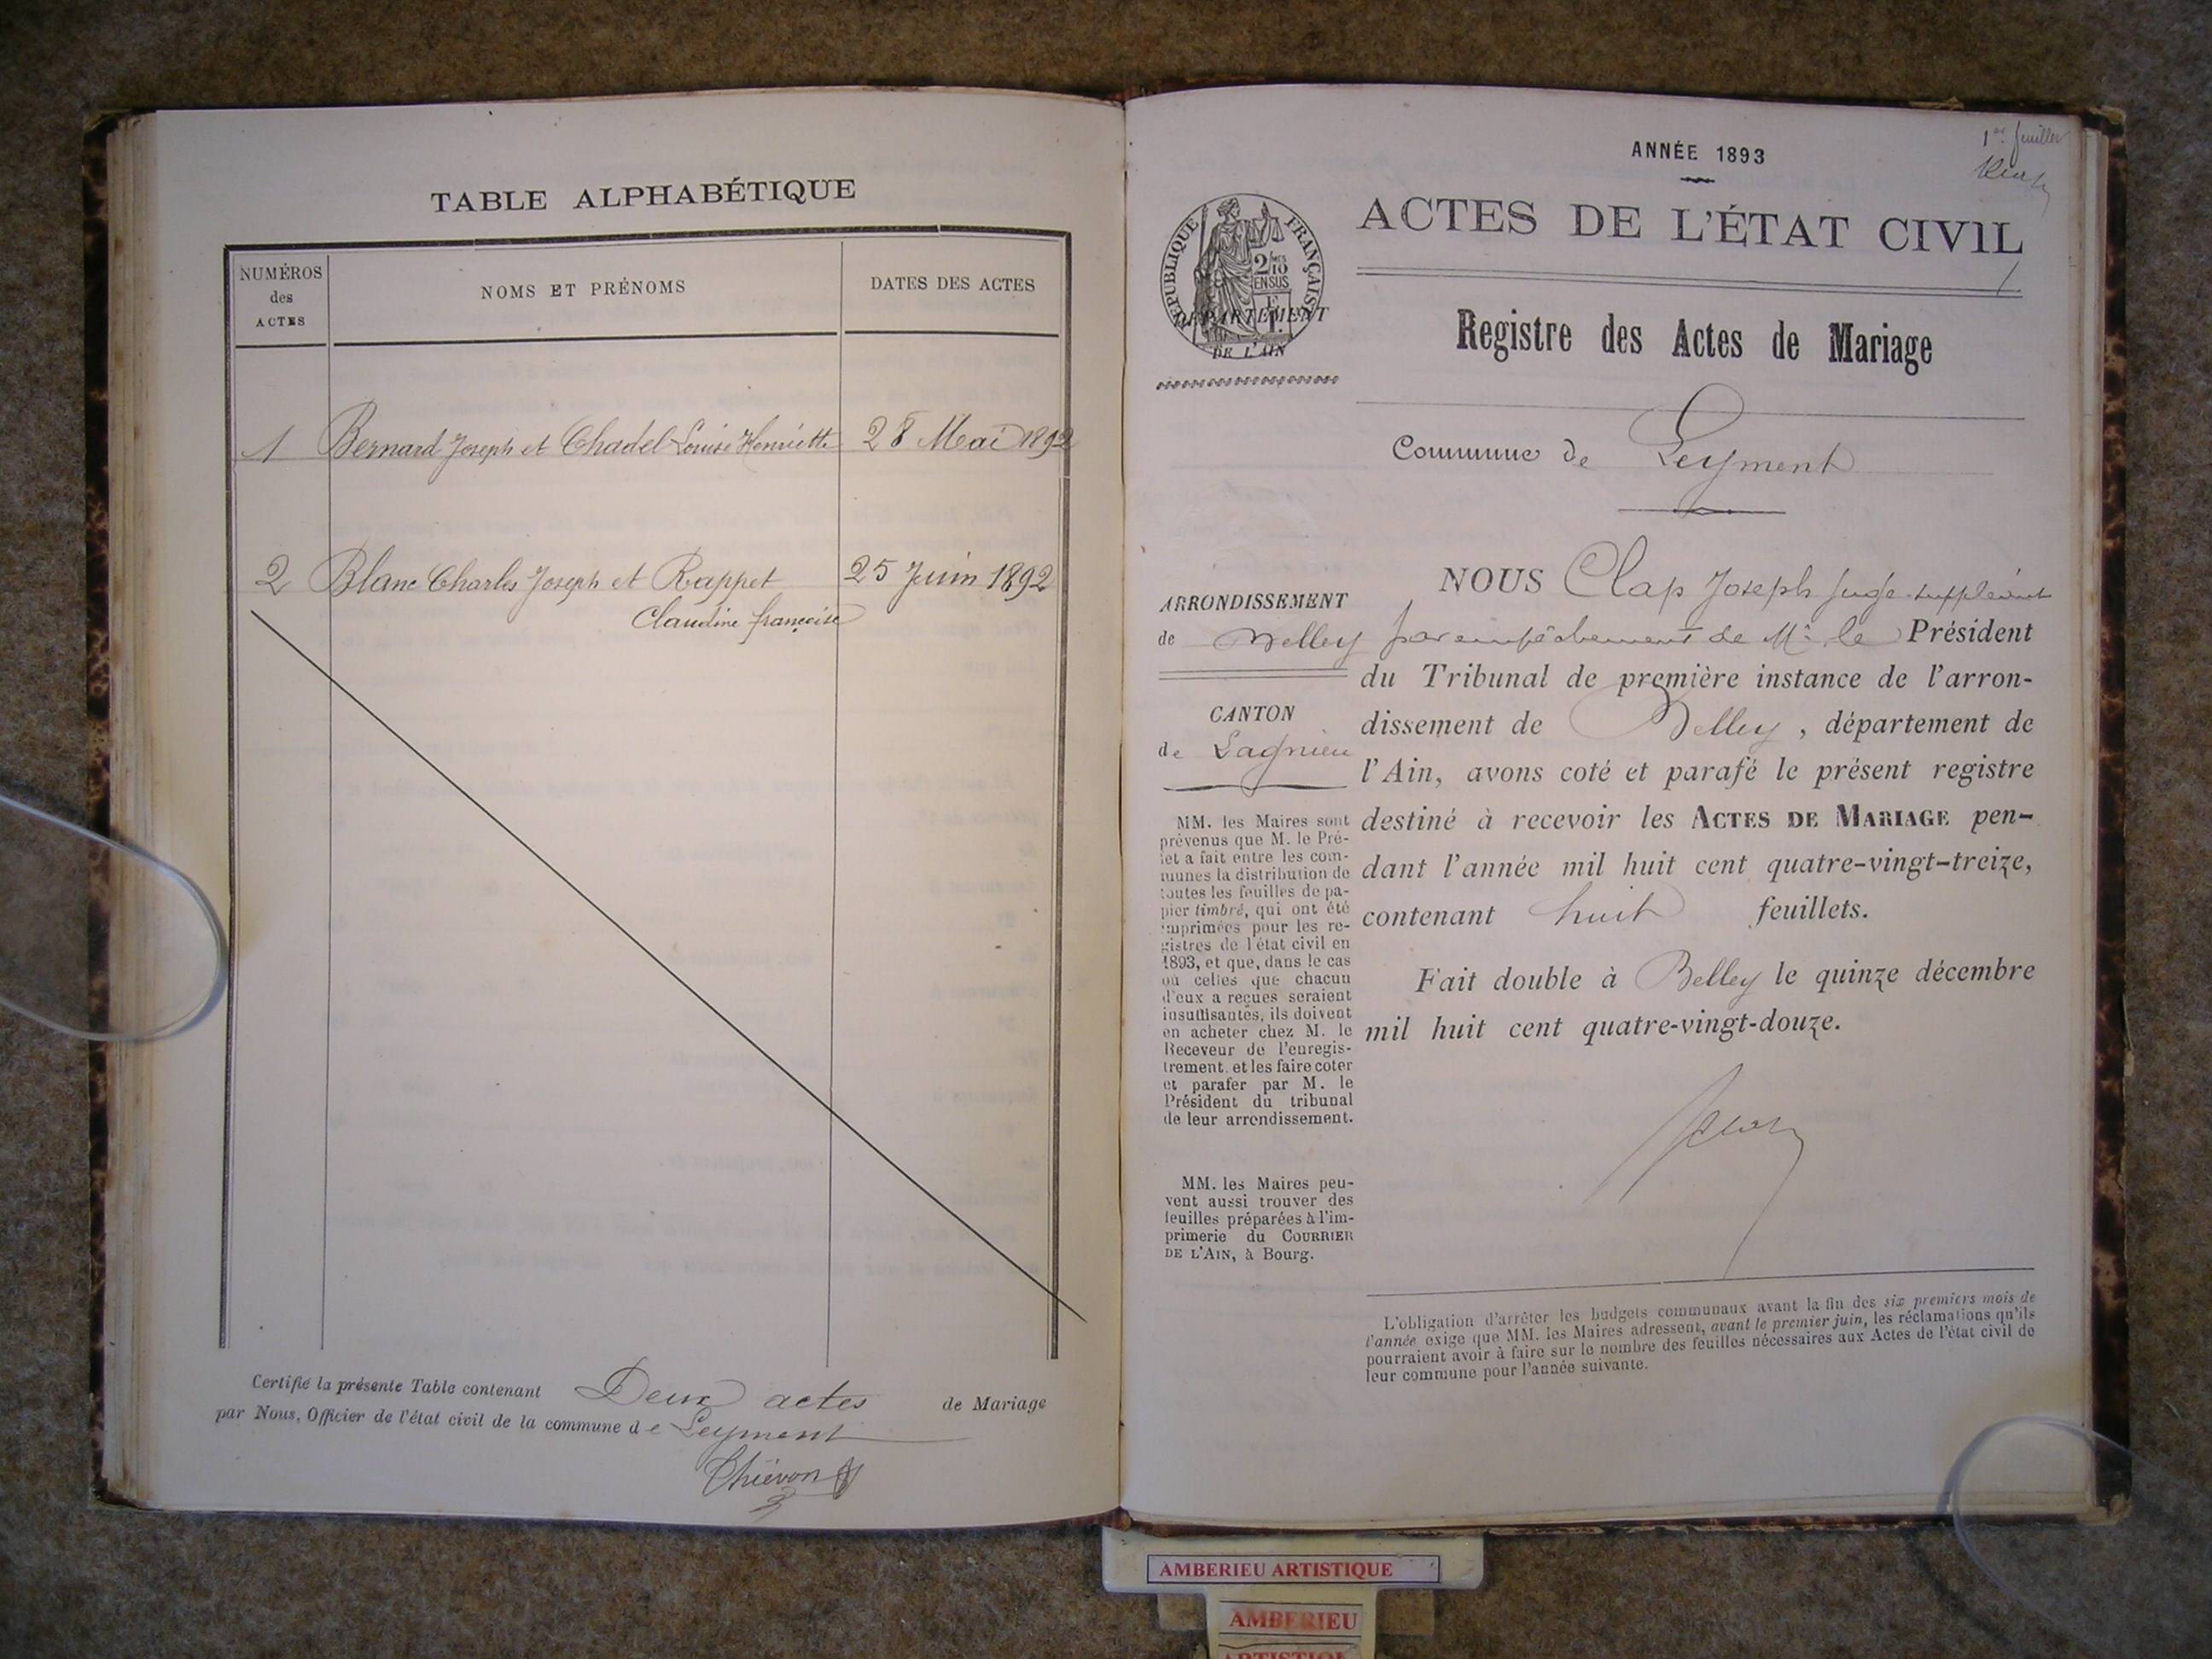 TABLE ALPHABÉTIQUE
NUMÉROS
des
ACTES
NOMS ET PRÉNOMS
DATES DES ACTES
1 Bernard Joseph et Chadel Louise Henriette 28 Mai 1892
2 Blanc Charles Joseph et Rappet 25 Juin 1892
Claudine françoise
Certifié la présente Table contenant Deux actes de Mariage
par Nous, Officier de l'état civil de la commune de Leyment
Thiévon
1er feuillet
ANNÉE 1893
ACTES DE L'ÉTAT CIVIL
RÉPUBLIQUE FRANÇAISE
2/10mes
EN SUS
DÉPARTEMENT
DE L'AIN
Registre des Actes de Mariage
Commune de Leyment
ARRONDISSEMENT
de Belley
CANTON
de Lagnieu
MM. les Maires sont
prévenus que M. le Pré-
fet a fait entre les com-
munes la distribution de
toutes les feuilles de pa-
pier timbré, qui ont été
imprimées pour les re-
gistres de l'état civil en
1893, et que, dans le cas
où celles que chacun
d'eux a reçues seraient
insuffisantes, ils doivent
en acheter chez M. le
Receveur de l'enregis-
trement, et les faire coter
et parafer par M. le
Président du tribunal
de leur arrondissement.
MM. les Maires peu-
vent aussi trouver des
feuilles préparées à l'im-
primerie du COURRIER
DE L'AIN, à Bourg.
NOUS Clap Joseph Juge suppléant
par empêchement de Mr le Président
du Tribunal de première instance de l'arron-
dissement de Belley, département de
l'Ain, avons coté et parafé le présent registre
destiné à recevoir les ACTES DE MARIAGE pen-
dant l'année mil huit cent quatre-vingt-treize,
contenant huit feuillets.
Fait double à Belley le quinze décembre
mil huit cent quatre-vingt-douze.
L'obligation d'arrêter les budgets communaux avant la fin des six premiers mois de
l'année exige que MM. les Maires adressent, avant le premier juin, les réclamations qu'ils
pourraient avoir à faire sur le nombre des feuilles nécessaires aux Actes de l'état civil de
leur commune pour l'année suivante.
AMBERIEU ARTISTIQUE
AMBERIEU
ARTISTIQUE